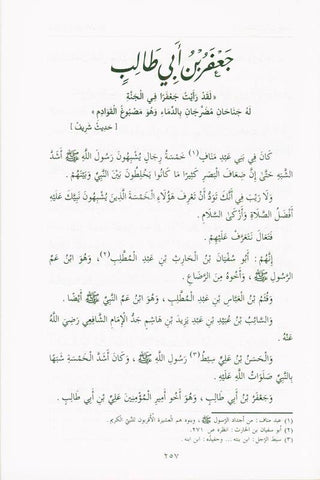 جَعْفَرُ بْنُ أَبِي طَالِبٍ
« لَقَدْ رَأَيْتُ جَعْفَرًا فِي الْجَنَّةِ
لَهُ جَنَاحَانِ مُضَرَّجَانِ بِالدِّمَاءِ وَهُوَ مَصْبُوغُ الْقَوَادِمِ »
[ حديث شريف ]
كَانَ فِي بَنِي عَبْدِ مَنَافٍ (١) خَمْسَةُ رِجَالٍ يُشْبِهُونَ رَسُولَ اللَّهِ ﷺ أَشَدَّ
الشَّبَهِ حَتَّى إِنَّ ضِعَافَ الْبَصَرِ كَثِيرًا مَا كَانُوا يَخْلِطُونَ بَيْنَ النَّبِيِّ وَبَيْنَهُمْ .
وَلَا رَيْبَ فِي أَنَّكَ تَوَدُّ أَنْ تَعْرِفَ هَؤُلَاءِ الْخَمْسَةَ الَّذِينَ يُشْبِهُونَ نَبِيَّكَ عَلَيْهِ
أَفْضَلُ الصَّلَاةِ وَأَزْكَى السَّلَامِ .
فَتَعَالَ نَتَعَرَّفْ عَلَيْهِمْ .
إِنَّهُمْ : أَبُو سُفْيَانَ بْنُ الْحَارِثِ بْنِ عَبْدِ الْمُطَّلِبِ (٢) ، وَهُوَ ابْنُ عَمِّ
الرَّسُولِ ﷺ ، وَأَخُوهُ مِنَ الرَّضَاعِ .
وَقُثَمُ بْنُ الْعَبَّاسِ بْنِ عَبْدِ الْمُطَّلِبِ ، وَهُوَ ابْنُ عَمِّ النَّبِيِّ ﷺ أَيْضًا .
وَالسَّائِبُ بْنُ عُبَيْدِ بْنِ عَبْدِ يَزِيدَ بْنِ هَاشِمٍ جَدُّ الْإِمَامِ الشَّافِعِي رَضِيَ اللَّهُ
عَنْهُ .
وَالْحَسَنُ بْنُ عَلِيٍّ سِبْطُ (٣) رَسُولِ اللَّهِ ﷺ ، وَكَانَ أَشَدَّ الْخَمْسَةِ شَبَهًا
بِالنَّبِيِّ صَلَوَاتُ اللَّهِ عَلَيْهِ .
وَجَعْفَرُ بْنُ أَبِي طَالِبٍ ، وَهُوَ أَخُو أَمِيرِ الْمُؤْمِنِينَ عَلِيِّ بْنِ أَبِي طَالِبٍ .
(١) عبد مناف : من أجداد الرَّسول ﷺ ، وبنوه هم العشيرة الأقربون للنَّبيِّ الكريم .
(٢) أبو سفيان بن الحارث : انظره ص ٢٧١ .
(٣) سبط الرَّجل : ابن بنته ... وحفيده : ابن ابنه .
٢٥٧